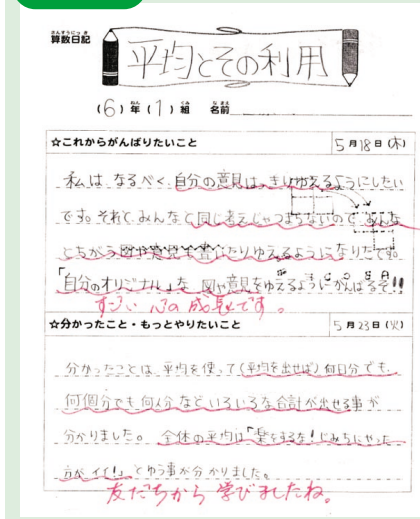 さんすうにっき
算数日記
平均とその利用
(6)年(1)組 名前
☆これからがんばりたいこと 5月18日(木)
私は なるべく、自分の意見はっきりゆえるようにしたい
です。それで、みんなと同じ考えじゃつまらないので みんな
とちがう図や意見で書いたりゆえるようになりたです。
「自分のオリジナル」な 図や意見をゆえるようにがんばるぞ!!
すごい 心の成長です。
☆分かったこと・もっとやりたいこと 5月23日(火)
分かったことは、平均を使って(平均を出せば)何日分でも、
何個分でも何人分などいろいろな合計が出せる事が
分かりました。 全体の平均は「楽をするな!じみちにやった
方がイイ!」とゆう事が分かりました。
友だちから 学びましたね。